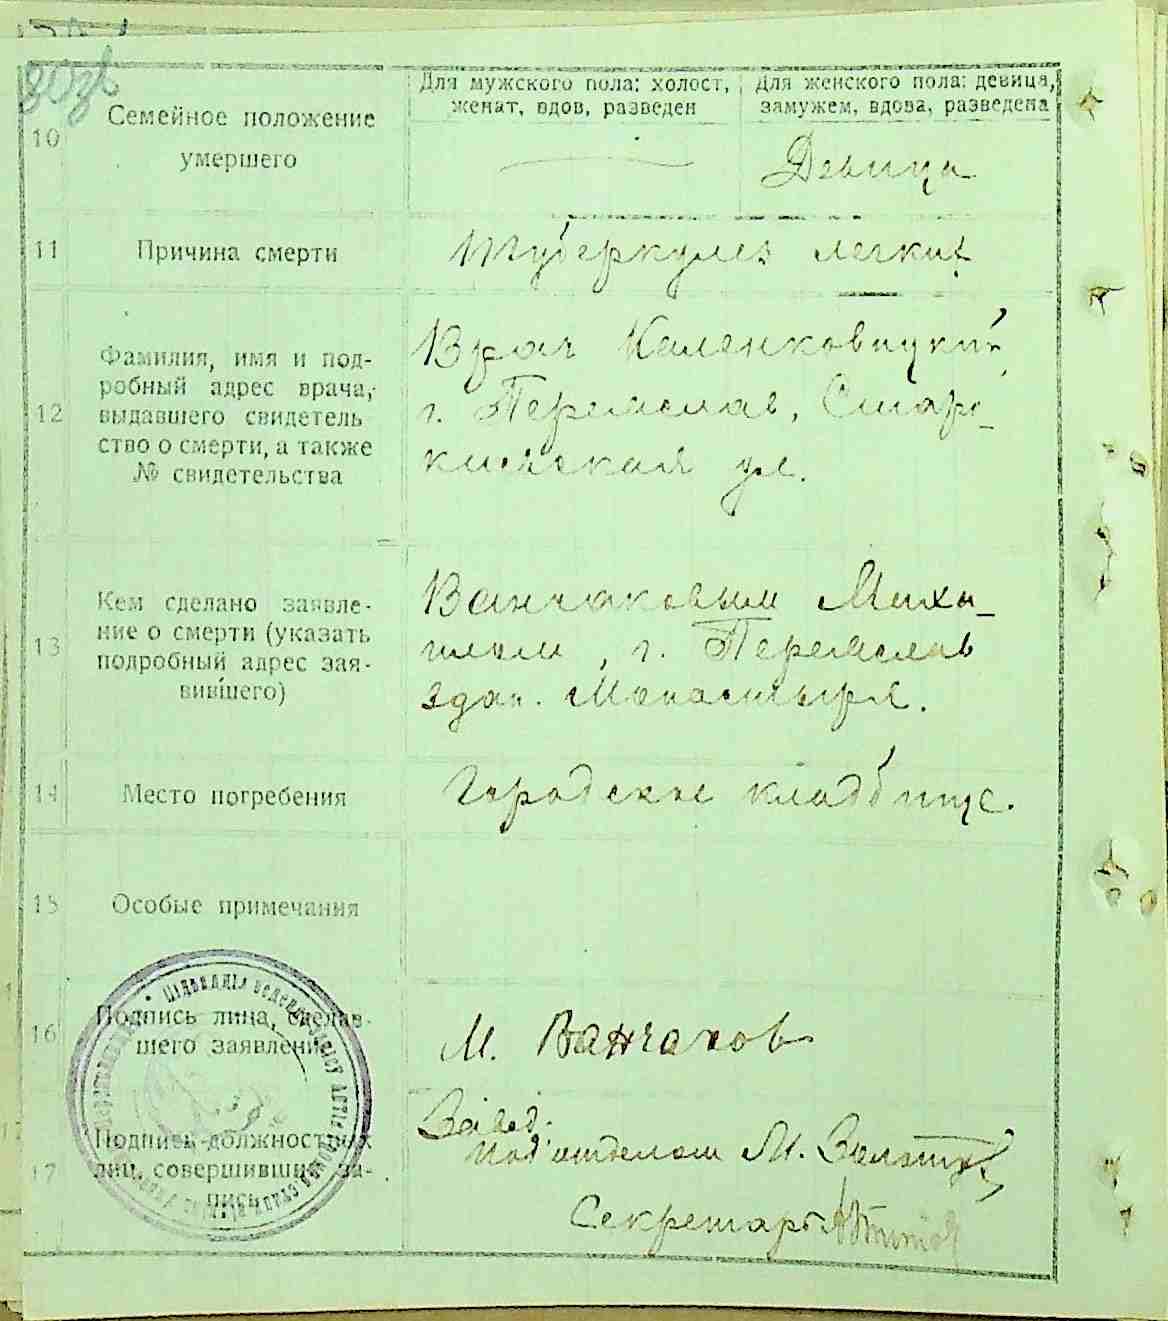 Для мужского пола: холост,
женат, вдов, разведен
Для женского пола: девица,
замужем, вдова, разведена
10
Семейное положение
умершего
Девица
11
Причина смерти
Туберкулез легких
12
Фамилия, имя и под-
робный адрес врача,
выдавшего свидетель
ство о смерти, а также
№ свидетельства
Врач
г. Переяслав,
ул.
13
Кем сделано заявле-
ние о смерти (указать
подробный адрес зая-
вившего)
Ванчаковым Миха-
илом, г. Переяслав
здан. Монастыря.
14
Место погребения
Городское кладбище.
15
Особые примечания
16
Подпись лица, сделав-
шего заявление
М. Ванчаков
17
Подпись должностных
лиц, совершивших за-
пись
Завед.
подотделом М.
Секретарь